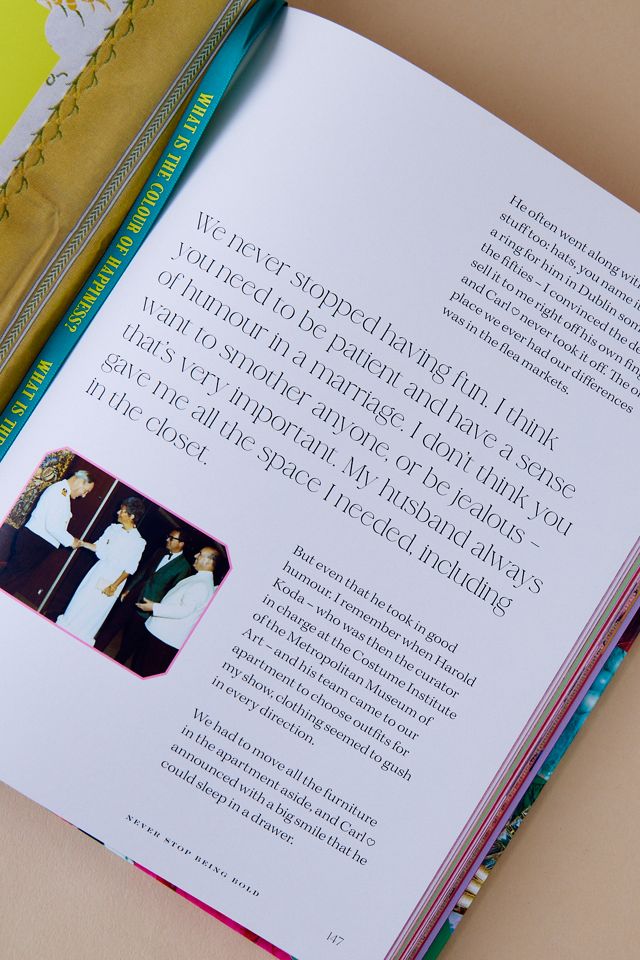 WHAT IS THE COLOUR OF HAPPINESS?
WHAT IS THE
He often went along with
stuff too: hats, you name
a ring for him in Dublin
the fifties – I convinced the
sell it to me right off his own
and Carl♡ never took it off. The
place we ever had our differences
was in the flea markets.
We never stopped having fun. I think
you need to be patient and have a sense
of humour in a marriage. I don't think you
want to smother anyone, or be jealous –
that's very important. My husband always
gave me all the space I needed, including
in the closet.
But even that he took in good
humour. I remember when Harold
Koda – who was then the curator
in charge at the Costume Institute
of the Metropolitan Museum of
Art – and his team came to our
apartment to choose outfits for
my show, clothing seemed to gush
in every direction.
We had to move all the furniture
in the apartment aside, and Carl♡
announced with a big smile that he
could sleep in a drawer.
NEVER STOP BEING BOLD
147